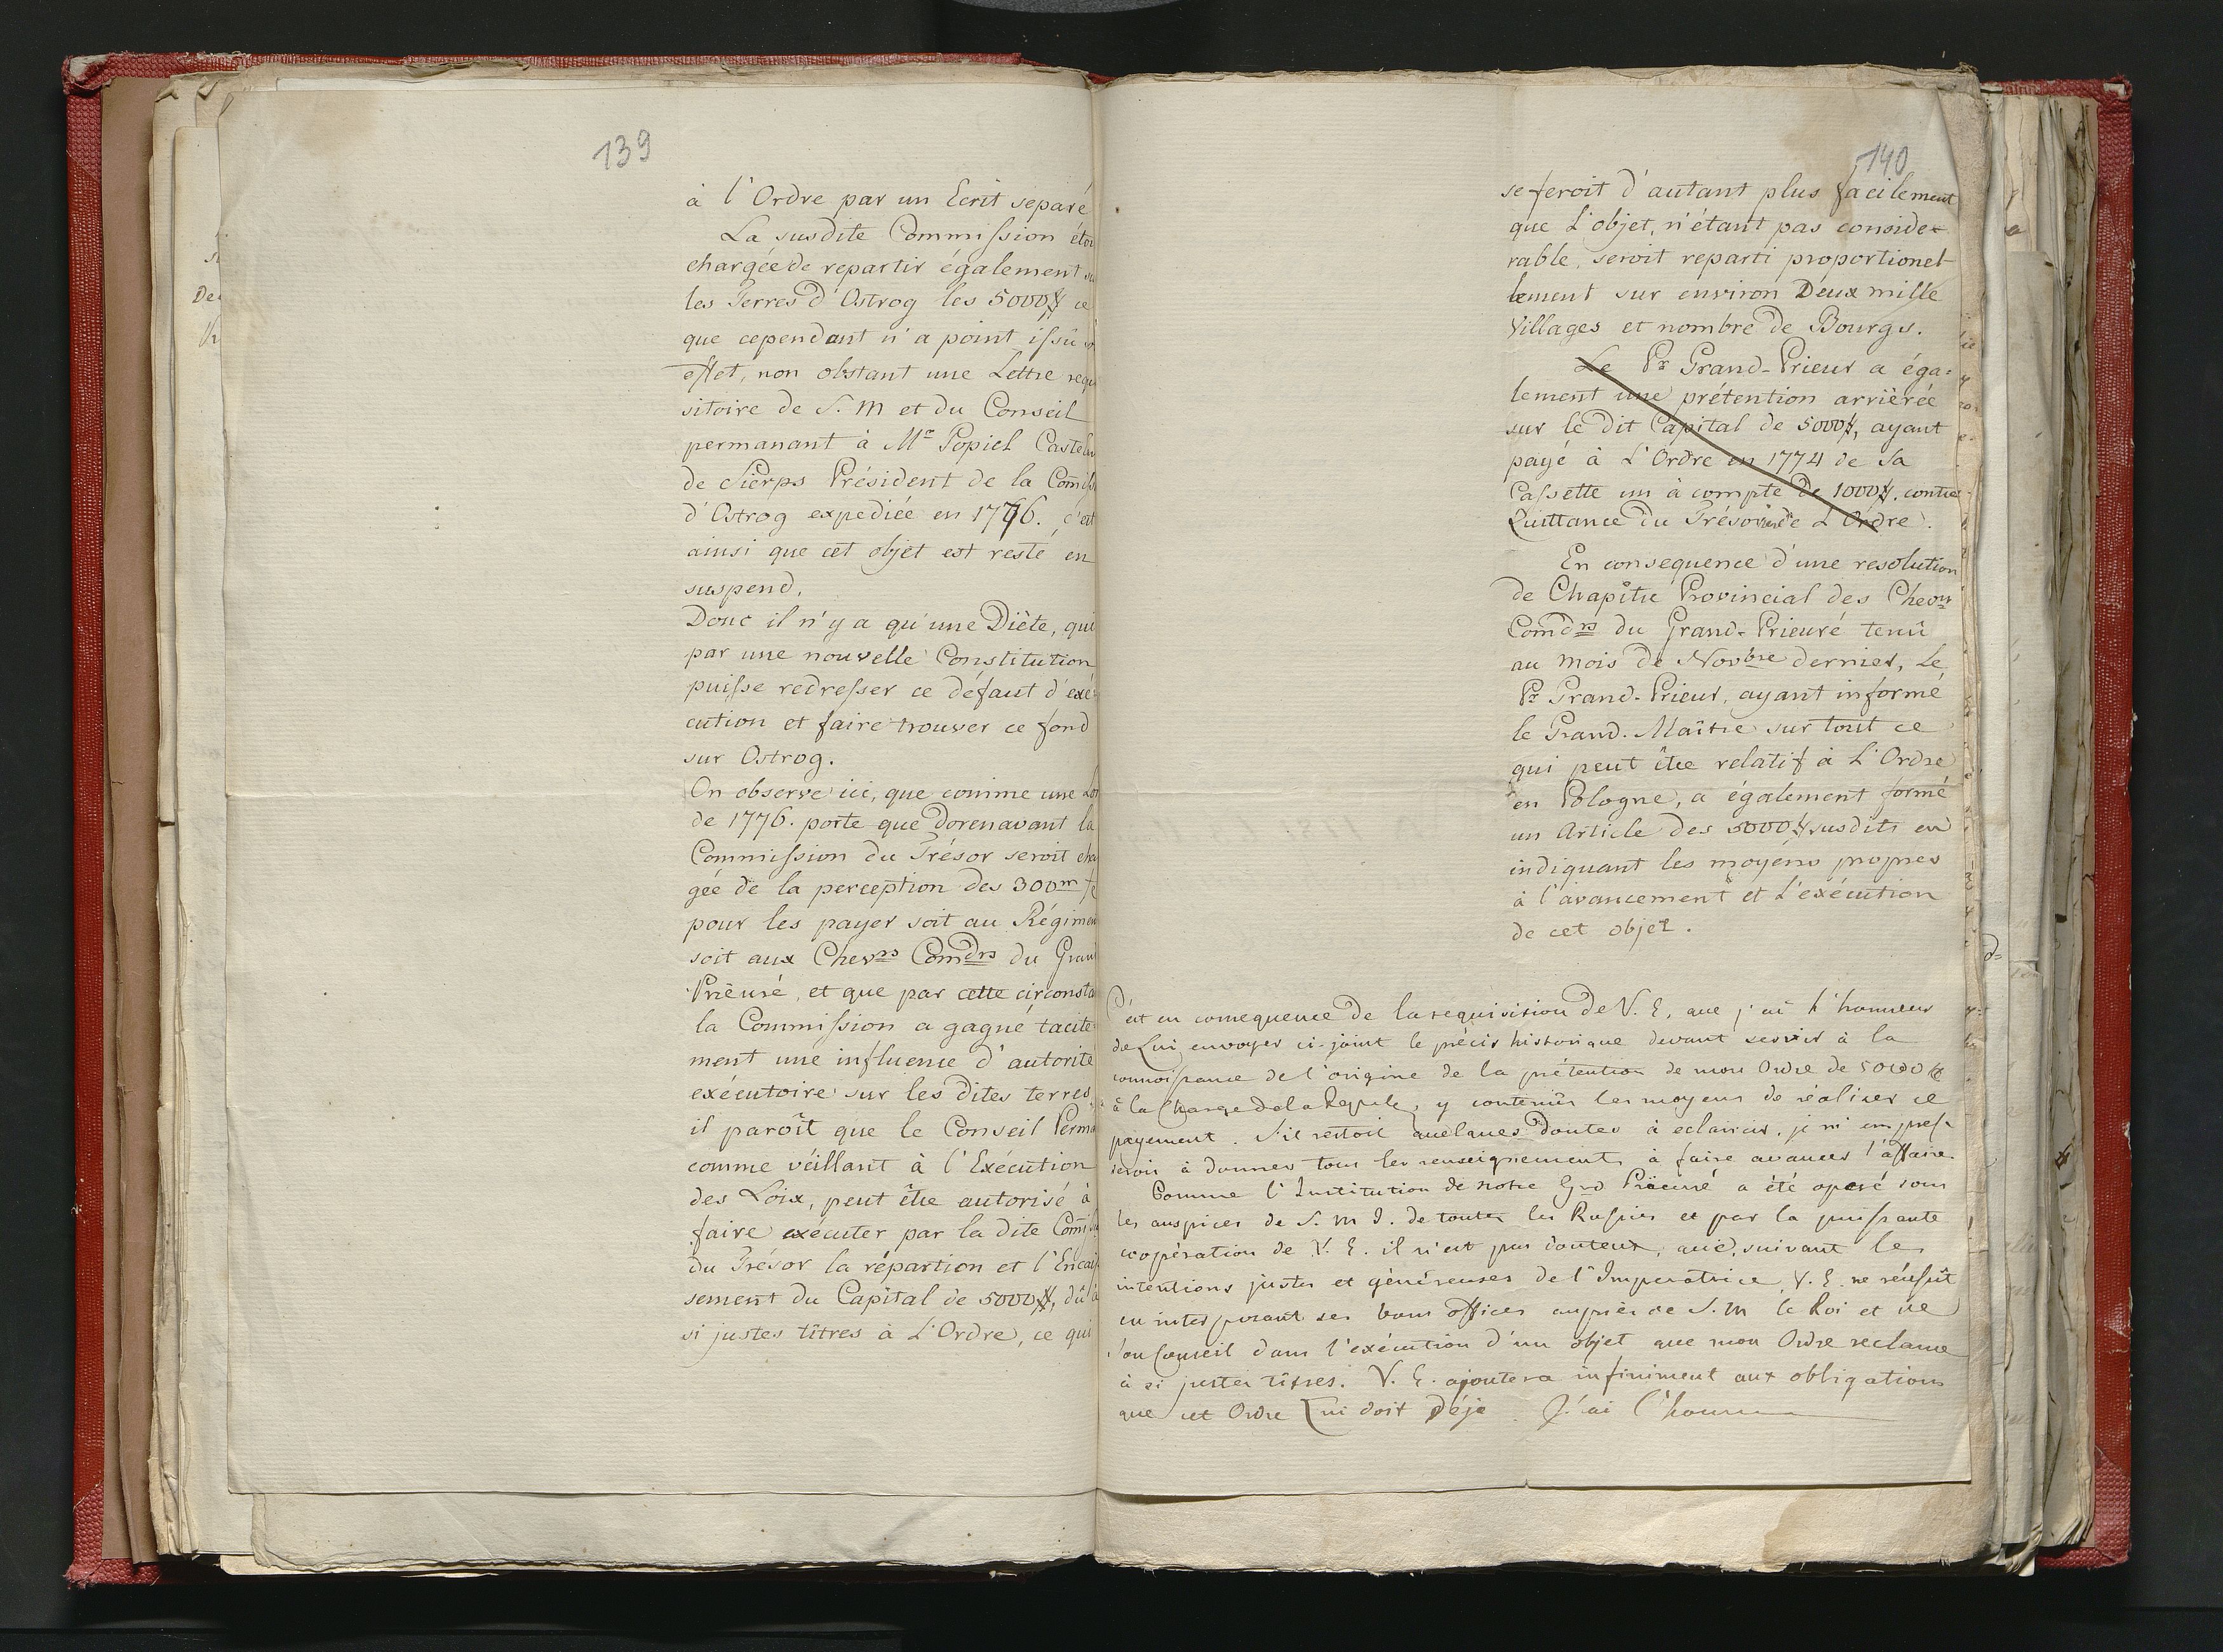 139
à l'Ordre par un Ecrit separé
La susdite Commission étoi
chargée de repartir également
les Terres d'Ostrog les 5000# ce
que cependant n'a point issû
effet, non obstant une Lettre requi
sitoire de S. M et du Conseil
permanant à Mr Popiel Castelan
de Sierps Président de la Comiss
d'Ostrog expediée en 1776. c'est
ainsi que cet objet est resté en
suspend.
Donc il n'y a qu'une Diête, qui
par une nouvelle Constitution
puisse redresser ce défaut d'exé
cution et faire trouver ce fond
sur Ostrog.
On observe ici, que comme une Loi
de 1776. porte que dorenavant la
Commission du Trésor seroit char
gée de la perception des 300m f
pour les payer soit au Régimen
soit aux Chevrs Comdrs du Grand
Prieuré, et que par cette circonsta
la Commission a gagné tacite
ment une influence d'autorité
exécutoire sur les dites terres,
il paroît que le Conseil Perma
comme véillant à l'Exécution
des Loix, peut être autorisé à
faire exécuter par la dite Comiss
du Trésor la répartion et l'Encais
sement du Capital de 5000#, dû à
si justes tîtres à L'Ordre, ce qui
140
se feroit d'autant plus facilement
que L'objet, n'étant pas conside-
rable, seroit reparti proportionel-
lement sur environ Deux mille
Villages et nombre de Bourgs.
Le Pr Grand-Prieur a éga=
lement une prétention arriérée
sur le dit Capital de 5000#, ayant
payé à L'Ordre en 1774 de sa
Cassette un à compte de 1000#. contre
Quittance du Trésor de L'Ordre.
En consequence d'une resolution
de Chapître Provincial des Chevrs
Comdrs du Grand-Prieuré tenû
au mois de Novbre dernier, Le
Pr Grand-Prieur, ayant informé
le Grand-Maître sur tout ce
qui peut être relatif à L'Ordre
en Pologne, a également formé
un Article des 5000# susdits en
indiquant les moyens propres
à l'avancement et L'exécution
de cet objet.
C'est en consequence de la requisision de V. E, que j'ai l'honneur
de Lui envoyer ci-joint le précis historique devant servir à la
connoissance de l'origine de la prétention de mon Ordre de 5000#
à la Charge de la Repule, y contenus les moyens de réaliser ce
payement. S'il restoit quelques Doutes à eclaircir, je m'empres-
serois à donner tous les renseignements à faire avancer l'affaire.
Comme l'Institution de notre Grd Prieuré a été operé sous
les auspices de S. M I. de toutes les Russies et par la puissante
coopération de V. E. il n'est pas douteux, que, suivant les
intentions justes et généreuses de l'Imperatrice, V. E. ne réussit
en interposant ses bons offices auprès de S. M le Roi et de
son Conseil dans l'exécution d'un objet que mon Ordre reclame
à si justes tîtres. V. E. ajoutera infiniment aux obligations
que cet Ordre Lui doit Déja. J'ai l'honn